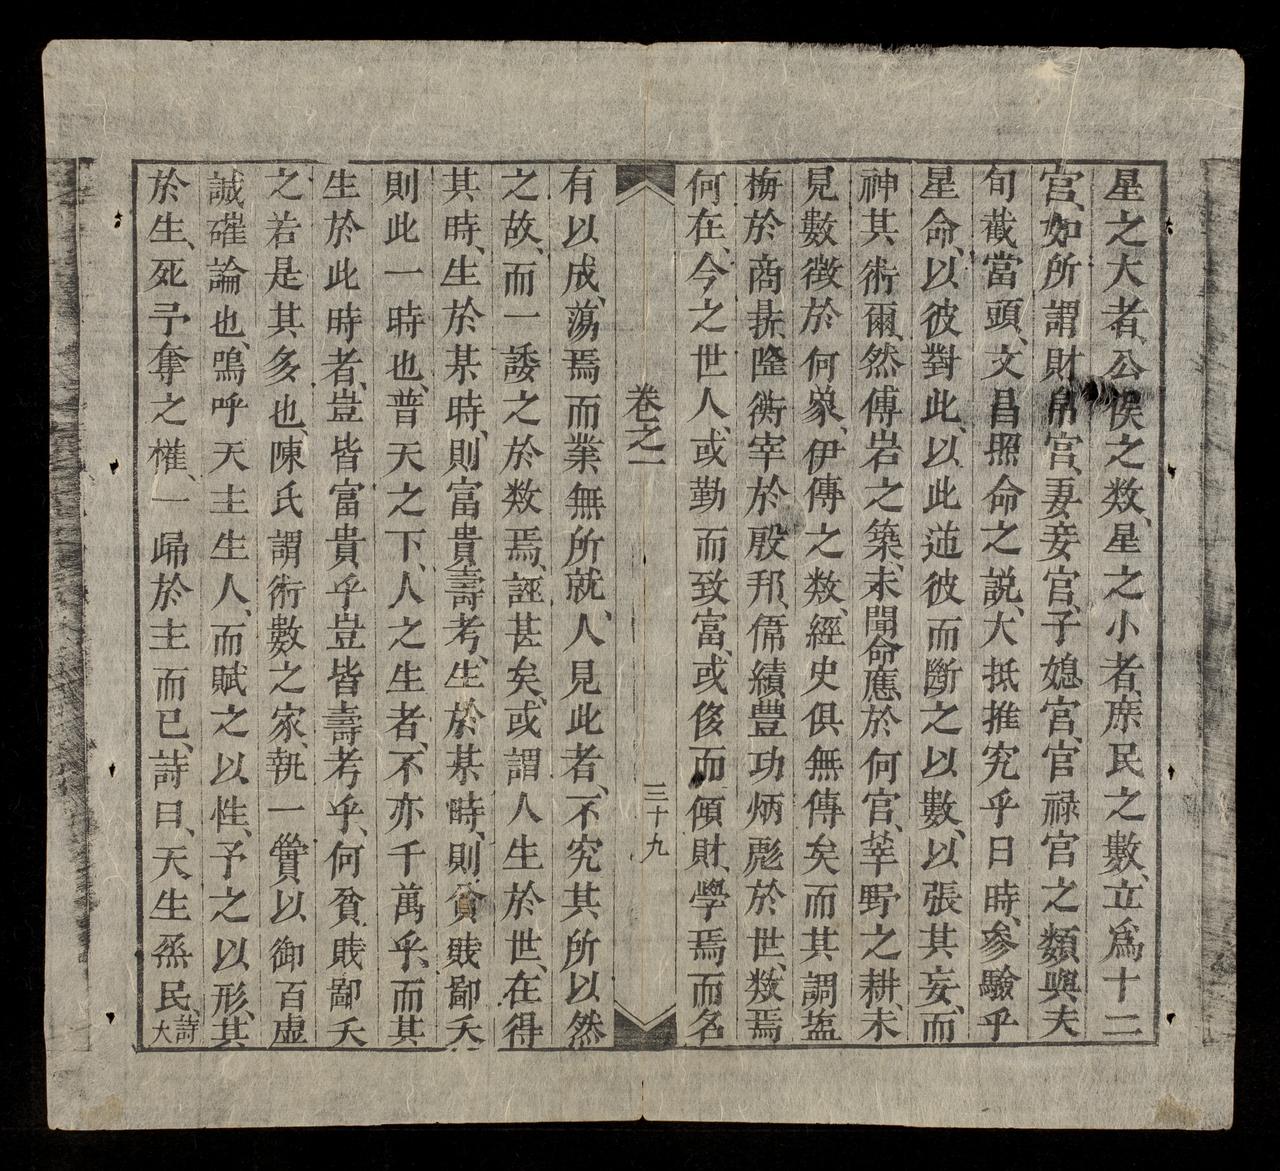 星之大者、公侯之数、星之小者、庶民之數、立爲十二
宮、如所謂財帛宮、妻妾宮、子媳宮、官禄宮之類與夫
旬截當頭、文昌照命之説、大抵推究乎日時、參驗乎
星命、以彼對此、以此道彼而斷之以數、以張其妄、而
神其術爾、然傅岩之築、未聞命應於何宮、莘野之耕、未
見數徴於何象、伊傅之数、經史俱無傳矣而其調塩
梅於商鼎、隆衡宰於殷邦、偹績豐功炳彪於世、数焉
何在、今之世人、或勤而致富、或侈而傾財、學焉而名
卷之一
三十九
有以成、蕩焉而業無所就、人見此者、不究其所以然
之故、而一諉之於数焉、誣甚矣、或謂人生於世、在得
其時、生於某時、則富貴壽考、生於某時、則貧賎鄙夭
則此一時也、普天之下、人之生者、不亦千萬乎、而其
生於此時者、豈皆富貴乎豈皆壽考乎、何貧賎鄙夭
之若是其多也、陳氏謂術數之家、執一實以御百虚
誠確論也、嗚呼天主生人、而賦之以性、予之以形、其
於生、死予奪之權、一歸於主而已、詩曰、天生烝民、詩大